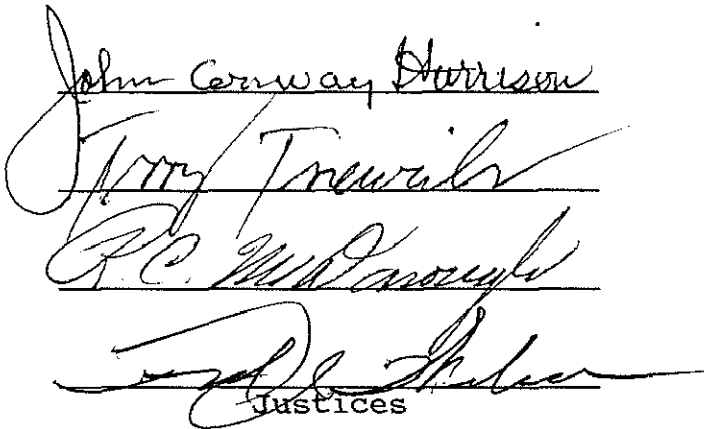 John Conway Harrison
Terry Trieweiler
R.C. McDonough
Justices